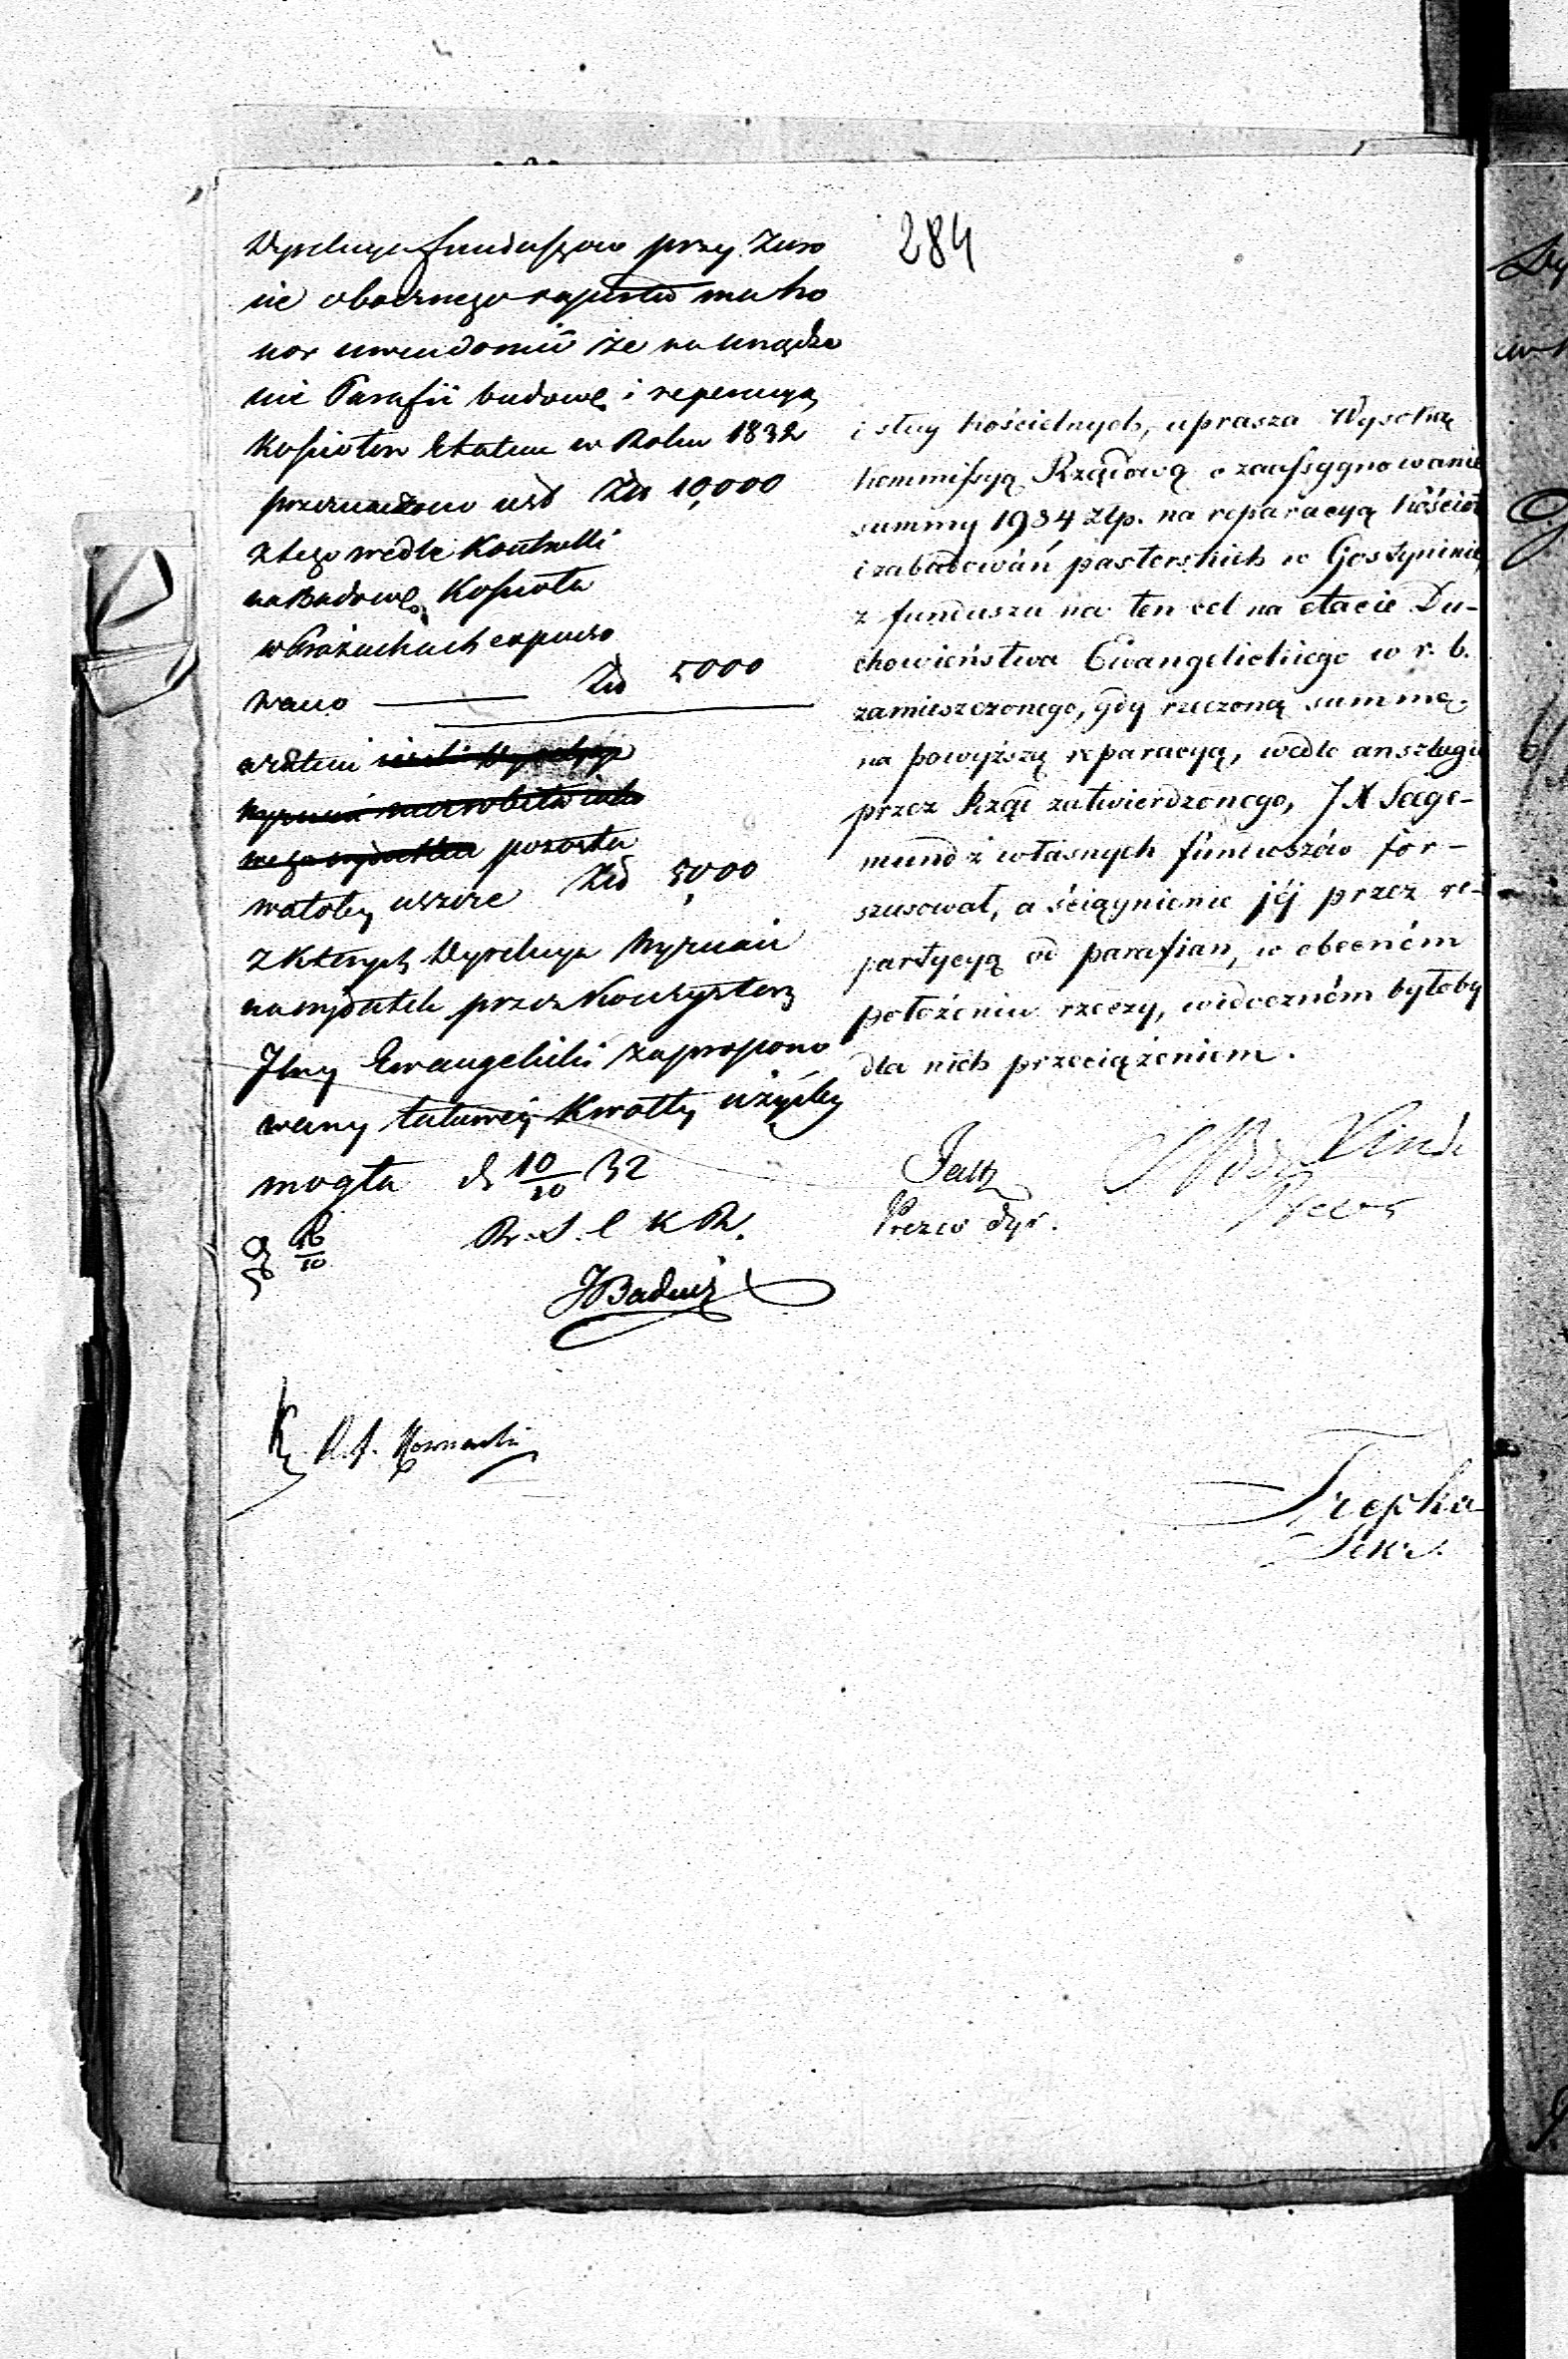 284
Dyrekcya funduszow przy zwro
cie obocznego raportu ma ho
nor uwiadomić że na urządze
nie Parafii budowę i reperacyą
Kościołow Etatem w Roku 1832
przeznaczono jest Złp 10,000
z tego wedle Kontrolli
na Budowę Kościoła
w Prażuchach expenso
wano — Złp 5000
zatem
pozosta
wałoby jeszcze Złp 5,000
z których Dyrekcya
na wydatek przez Konsystorz
Jlny Ewangelicki zapropono
wany kwotty użyćby
mogła d 10/10 32
16/10
R. S. K R.
JBadeni
R. S.
i sług kościelnych, uprasza Wysoką
Kommissyą Rządową o zaassygnowanie
summy 1934 złp. na reparacyą kościoł
i zabudowań pasterskich w Gostyninie,
z funduszu na ten cel na etacie Du-
chowieństwa Ewangelickiego w r. b.
zamieszczonego, gdy rzeczoną summę
na powyższą reparacyą, wedle anszlagu
przez Rząd zatwierdzonego, JX Seege-
mund z własnych funduszów for-
szusował, a ściągnienie jéj przez re-
partycyą od parafian, w obecném
położeniu rzeczy, widoczném byłoby
dla nich przeciążeniem.
Prezes Dyr.
Trepka
Sekr.